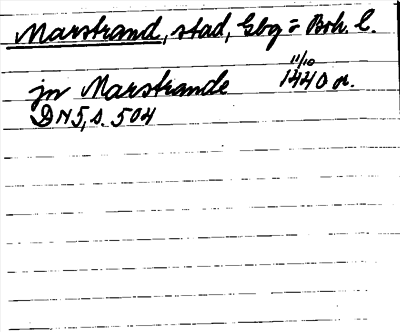 Marstrand, stad, Gbg = Boh. l.
11/10
jn Marstrande 1440 or.
DN 5, s. 504